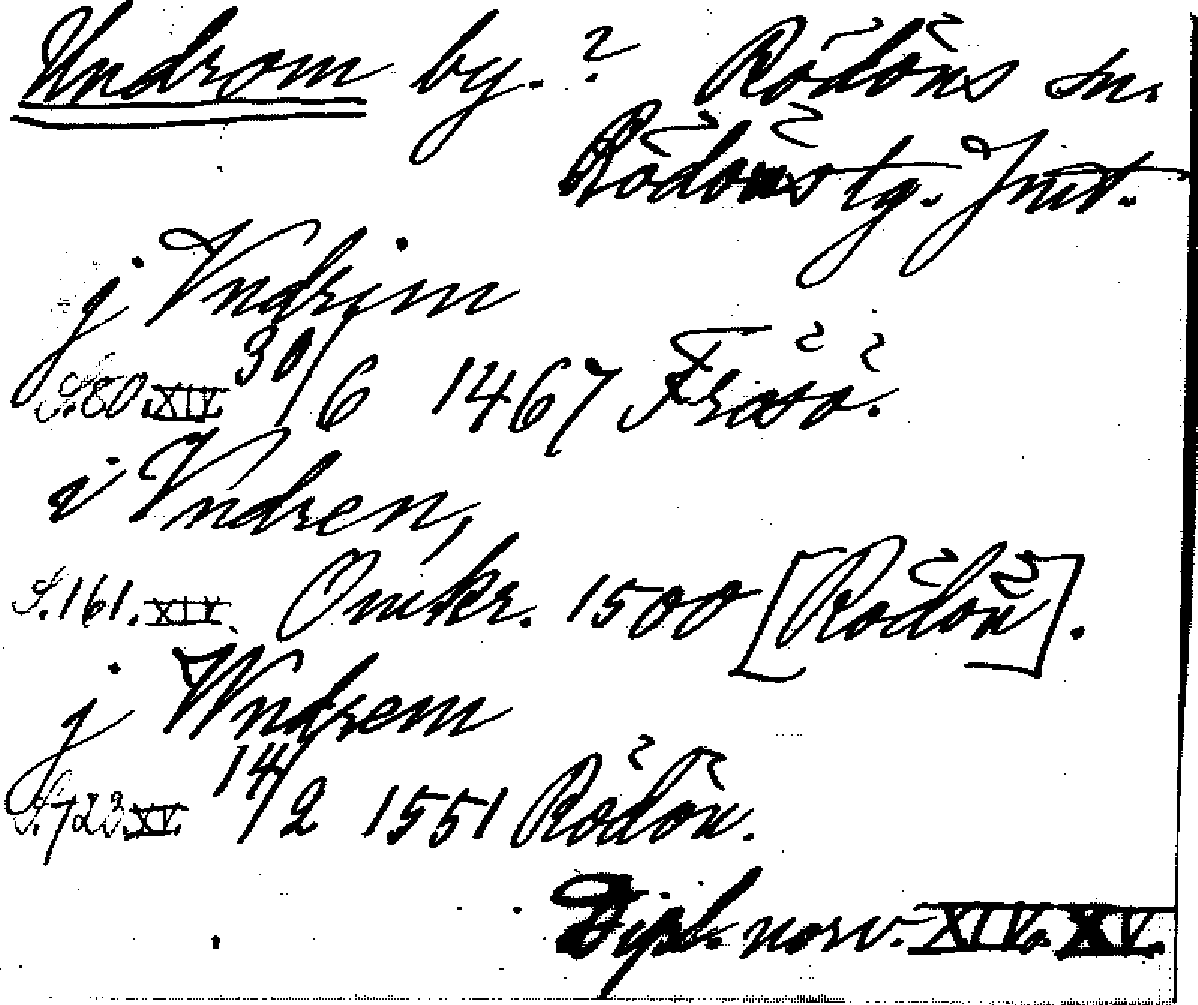 Undrom by. ? Rödöns sn.
Rödöns tg. Jmt.
j Vndrim
S. 80. XIV. 30/6 1467 Frösö.
i Vndren,
S. 161. XIV. Omkr. 1500 [Rödön].
j Wndrem
S. 723. XV. 14/2 1551 Rödön.
Dipl. norv. XIV. XV.